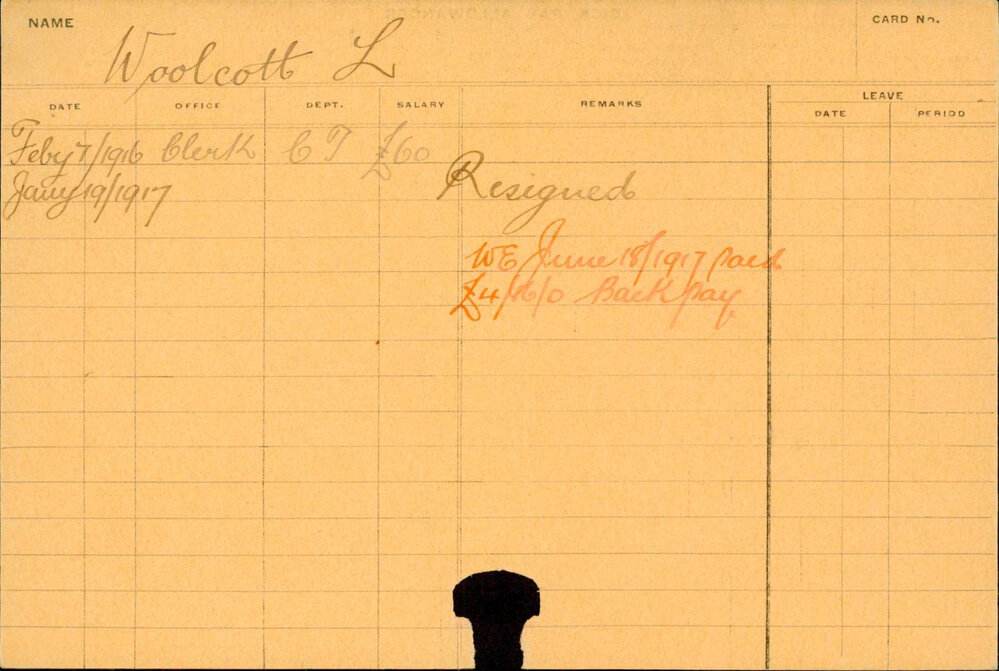 NAME
CARD No.
Woolcott L
DATE OFFICE DEPT. SALARY REMARKS LEAVE
DATE PERIOD
Feby 7/1916 Clerk C T £60
Jany 19/1917 Resigned
WE June 18/1917 Paid
£4/16/0 Back pay